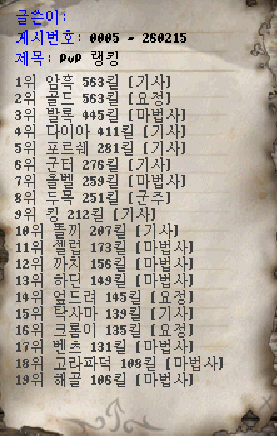 글쓴이:
게시번호: 0005 - 280215
제목: PvP 랭킹
1위 암흑 563킬 [기사]
2위 골드 563킬 [요정]
3위 발록 445킬 [마법사]
4위 다이아 411킬 [기사]
5위 포르쉐 281킬 [기사]
6위 군터 276킬 [기사]
7위 홀벨 259킬 [마법사]
8위 두목 251킬 [군주]
9위 킹 212킬 [기사]
10위 돌끼 207킬 [기사]
11위 셀럽 173킬 [마법사]
12위 까치 156킬 [마법사]
13위 하딘 149킬 [마법사]
14위 엎드려 145킬 [요정]
15위 탁사마 139킬 [기사]
16위 크롬이 135킬 [요정]
17위 벤츠 131킬 [마법사]
18위 고라파덕 108킬 [마법사]
19위 해골 108킬 [마법사]